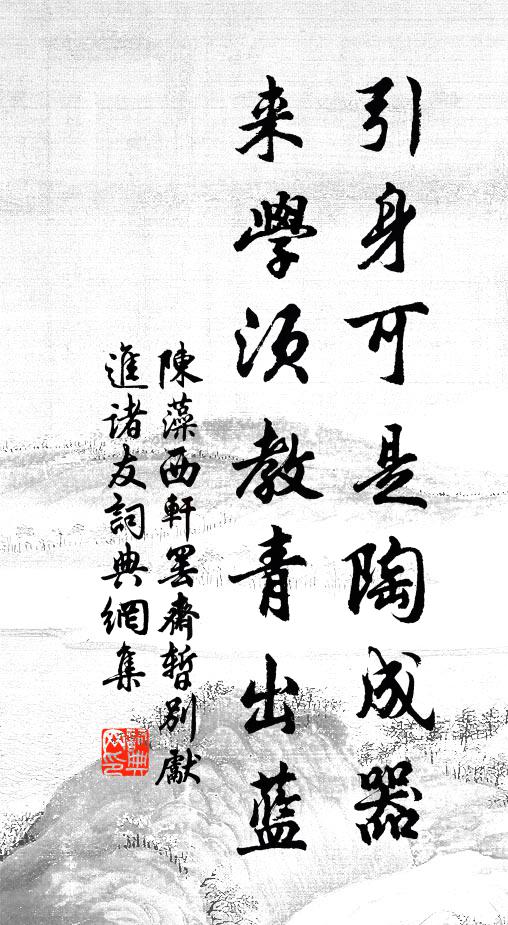 引身可是陶成器
来學须教青出藍
陳藻西軒罢齋暫别獻
進诸友詞典網集